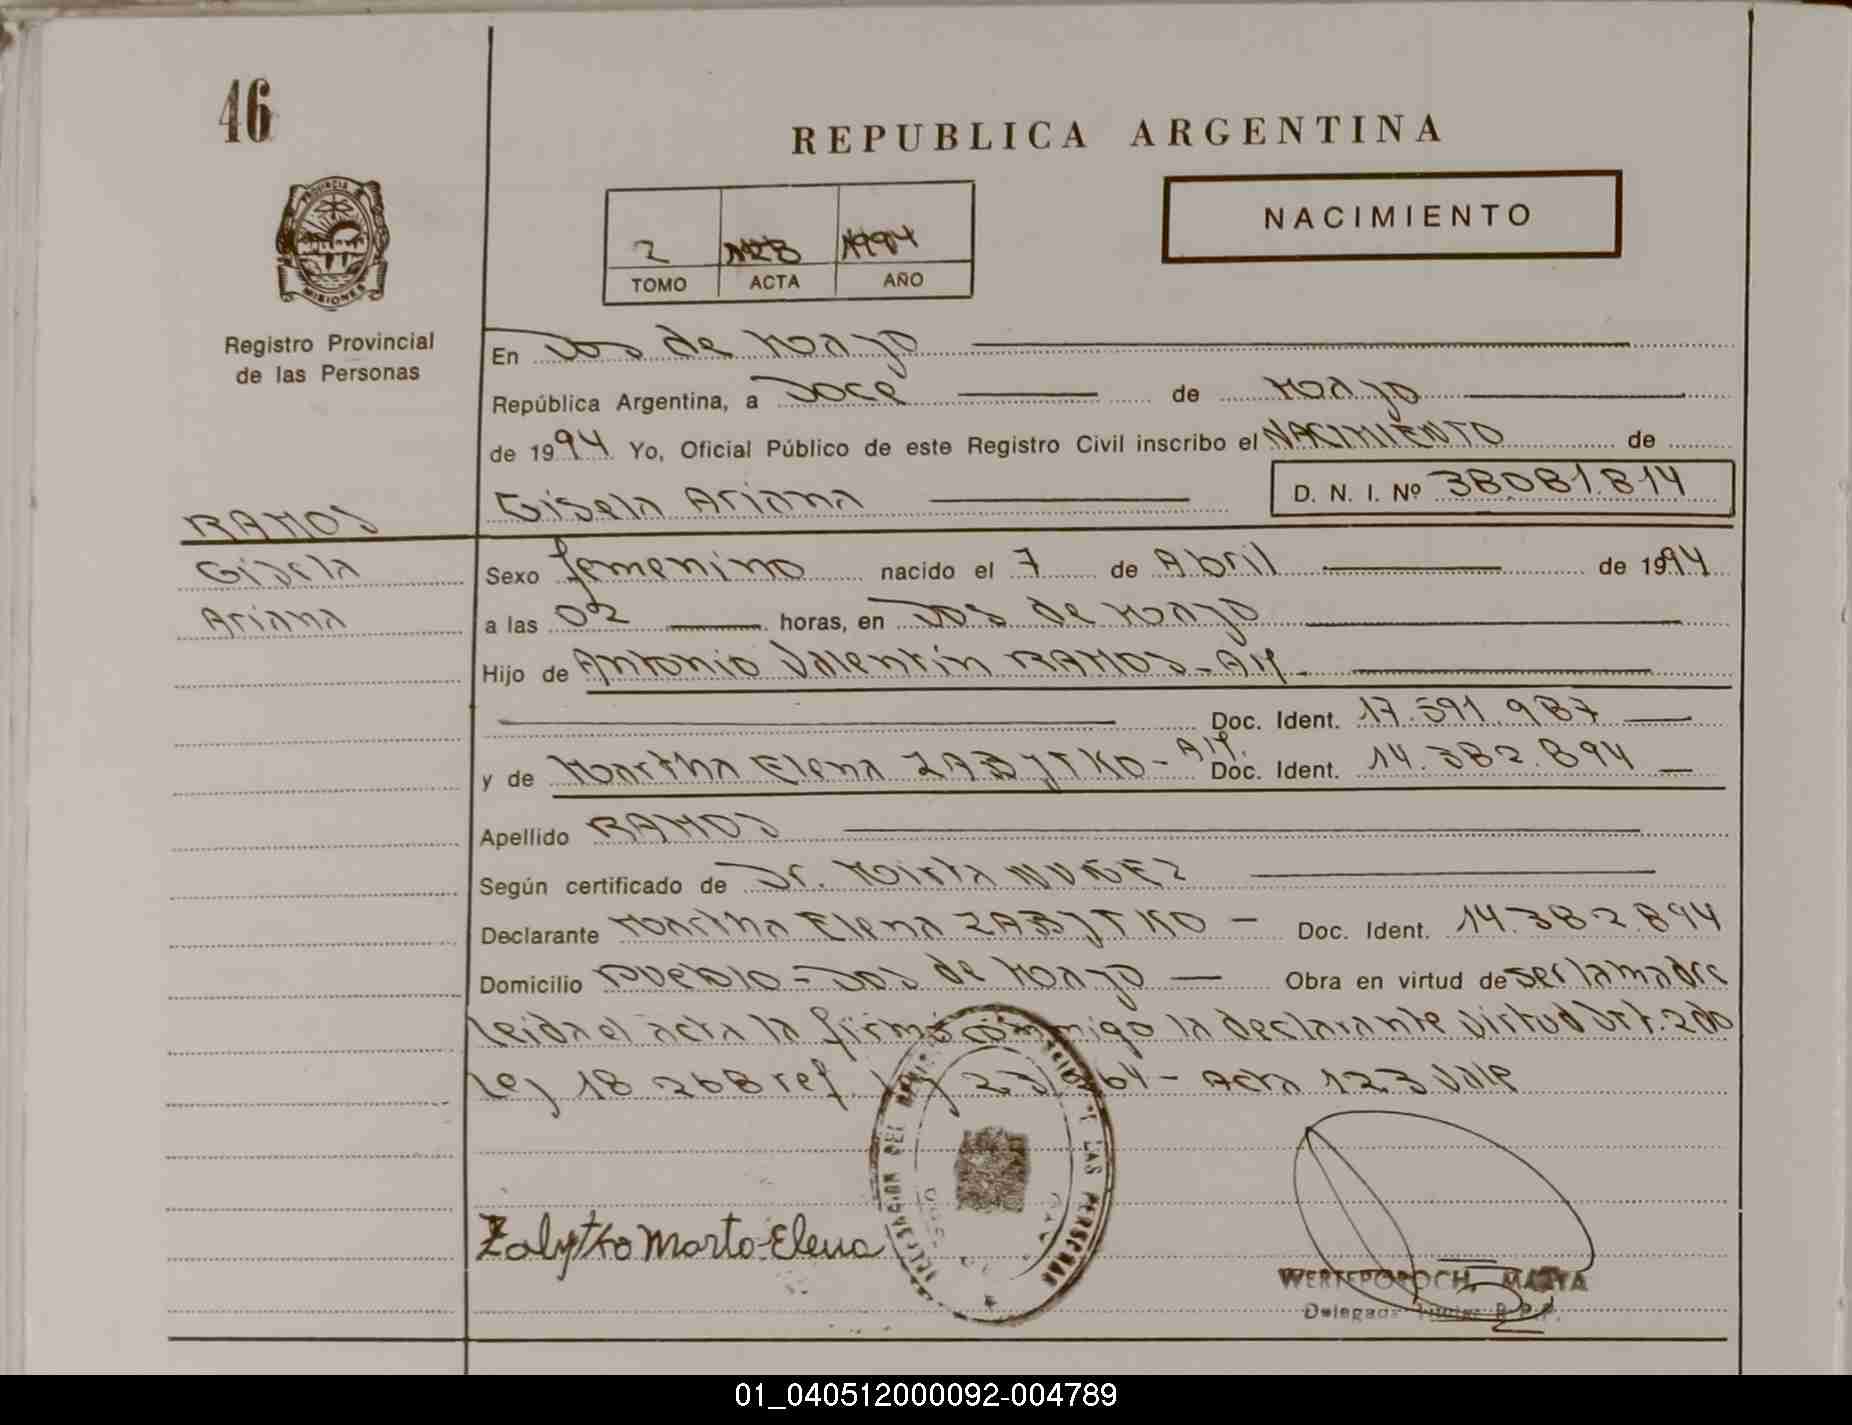 46
REPUBLICA ARGENTINA
NACIMIENTO
2 1994
TOMO ACTA AÑO
PROVINCIA DE
MISIONES
Registro Provincial
de las Personas
En Dos de Mayo
República Argentina, a Doce de Mayo
de 1994 Yo, Oficial Público de este Registro Civil inscribo el NACIMIENTO de
Gisela Ariana D. N. I. Nº 38.081.814
RAMOS
Gisela
Ariana
Sexo femenino nacido el 7 de Abril de 1994
a las 02 horas, en Dos de Mayo
Hijo de Antonio Valentín RAMOS - Arg.
Doc. Ident. 17.591.987
y de Martha Elena ZABYTKO - Arg. Doc. Ident. 14.382.894
Apellido RAMOS
Según certificado de Dr. Mirta NUÑEZ
Declarante Martha Elena ZABYTKO - Doc. Ident. 14.382.894
Domicilio Pueblo - Dos de Mayo Obra en virtud de ser la madre
leida el acta la firmó conmigo la declarante virtud Art. 200
Ley 18 268 ref. 23 64 - Acta 123 Vale
Zabytko Marta Elena
DE LAS PERSONAS
WERTEPOROCH, MARTA
Delegada Titular R.P.P.
01_040512000092-004789